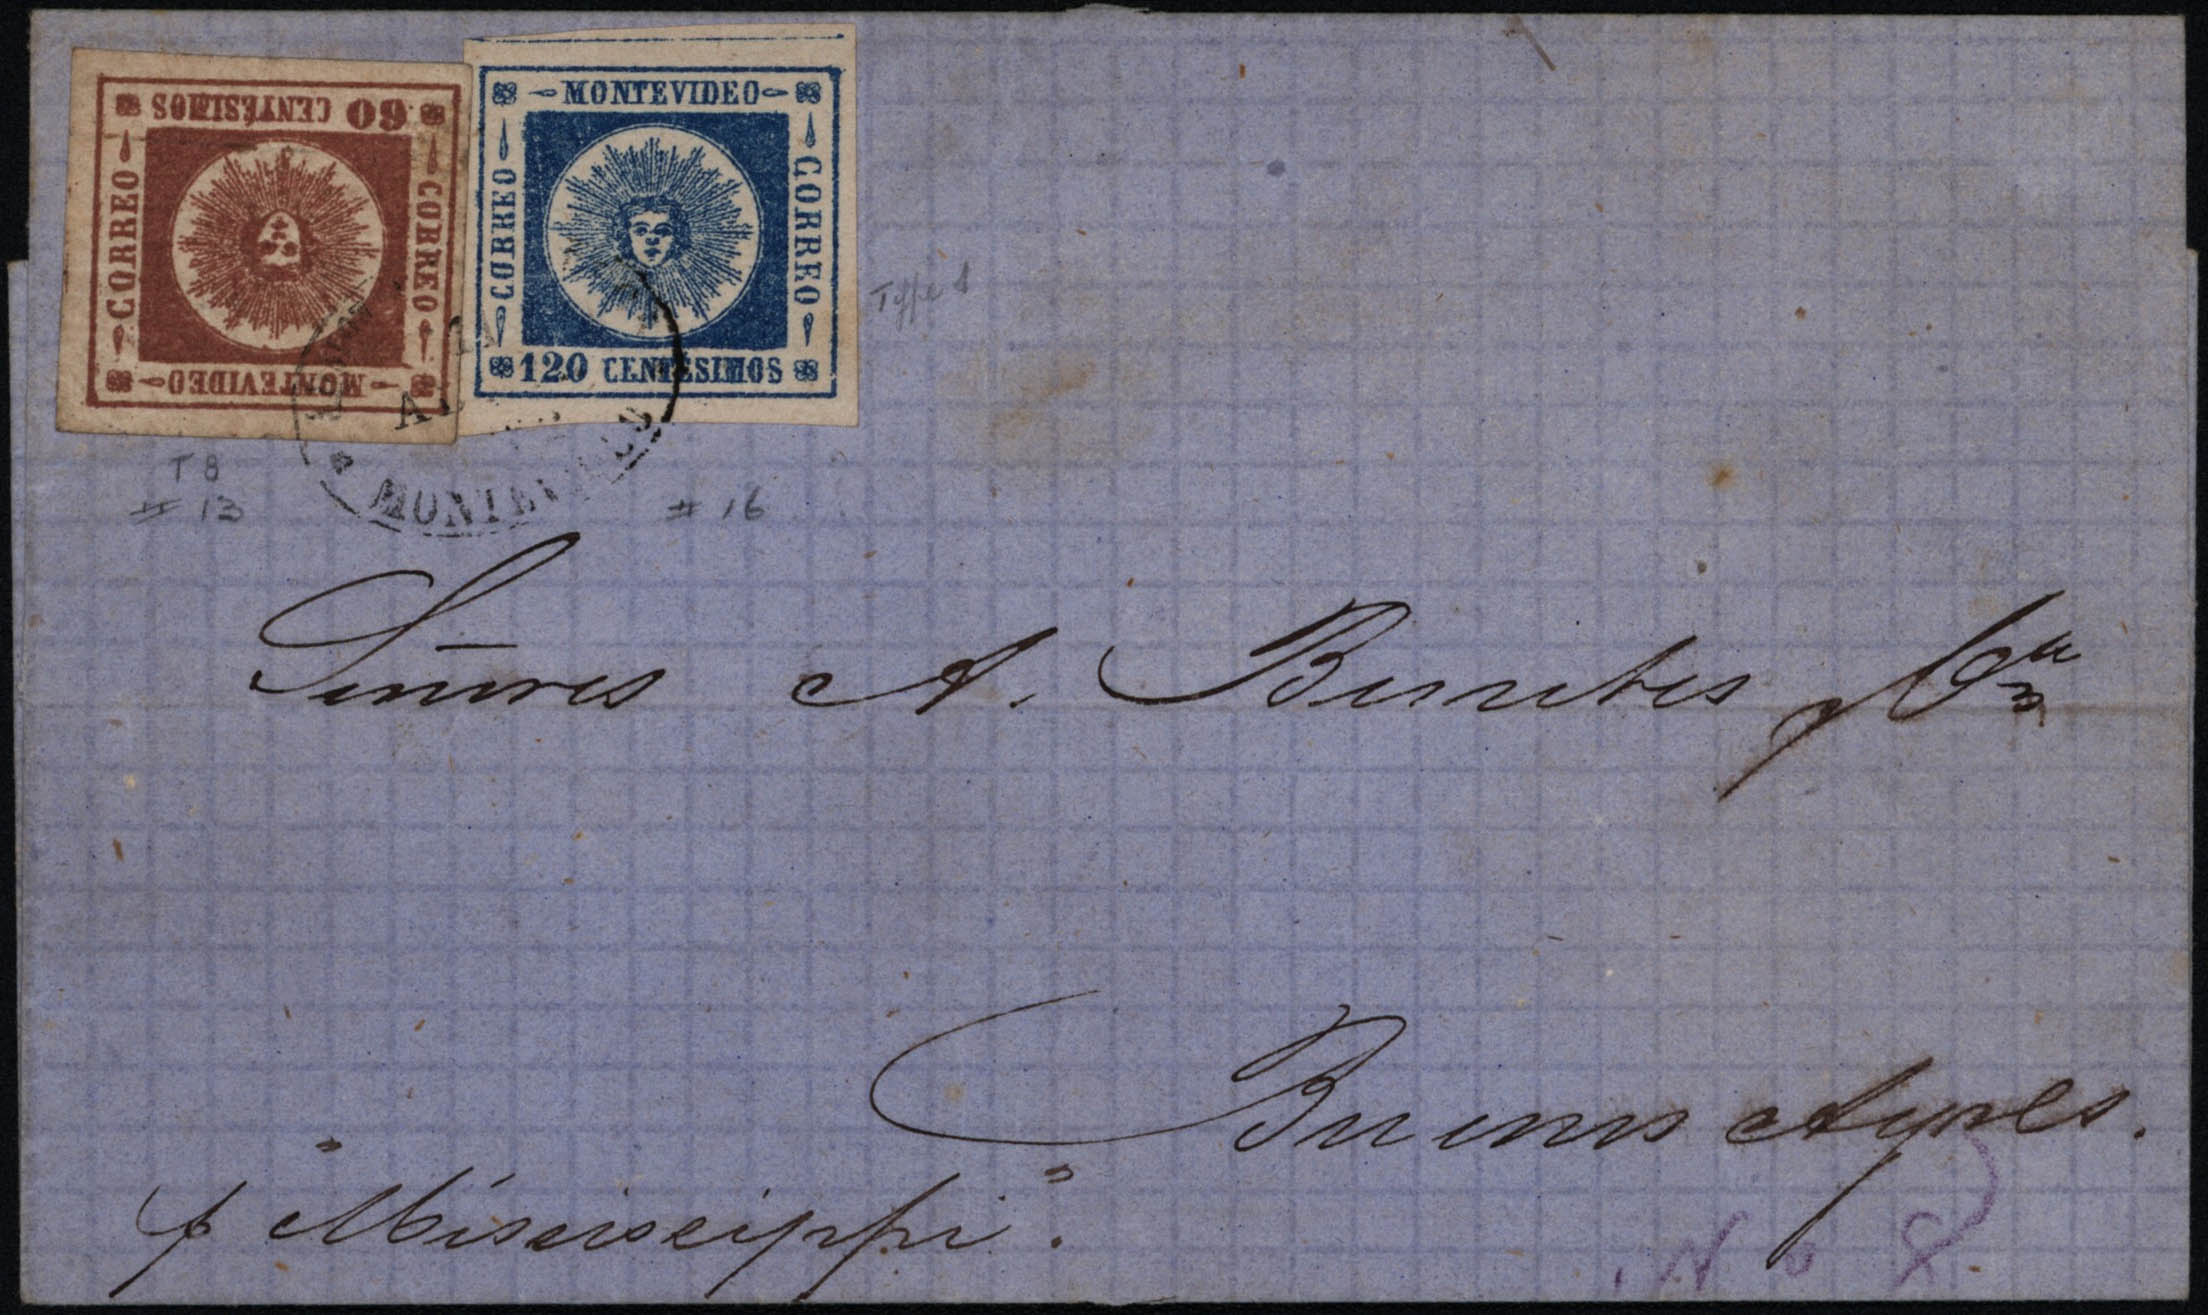 60 CENTÉSIMOS
CORREO
CORREO
MONTEVIDEO
MONTEVIDEO
CORREO
CORREO
120 CENTÉSIMOS
Type 1
T 8
# 13
# 16
MONTEVIDEO
Señores A. Benites y Cia
Buenos Ayres.
p "Mississippi".
No 8